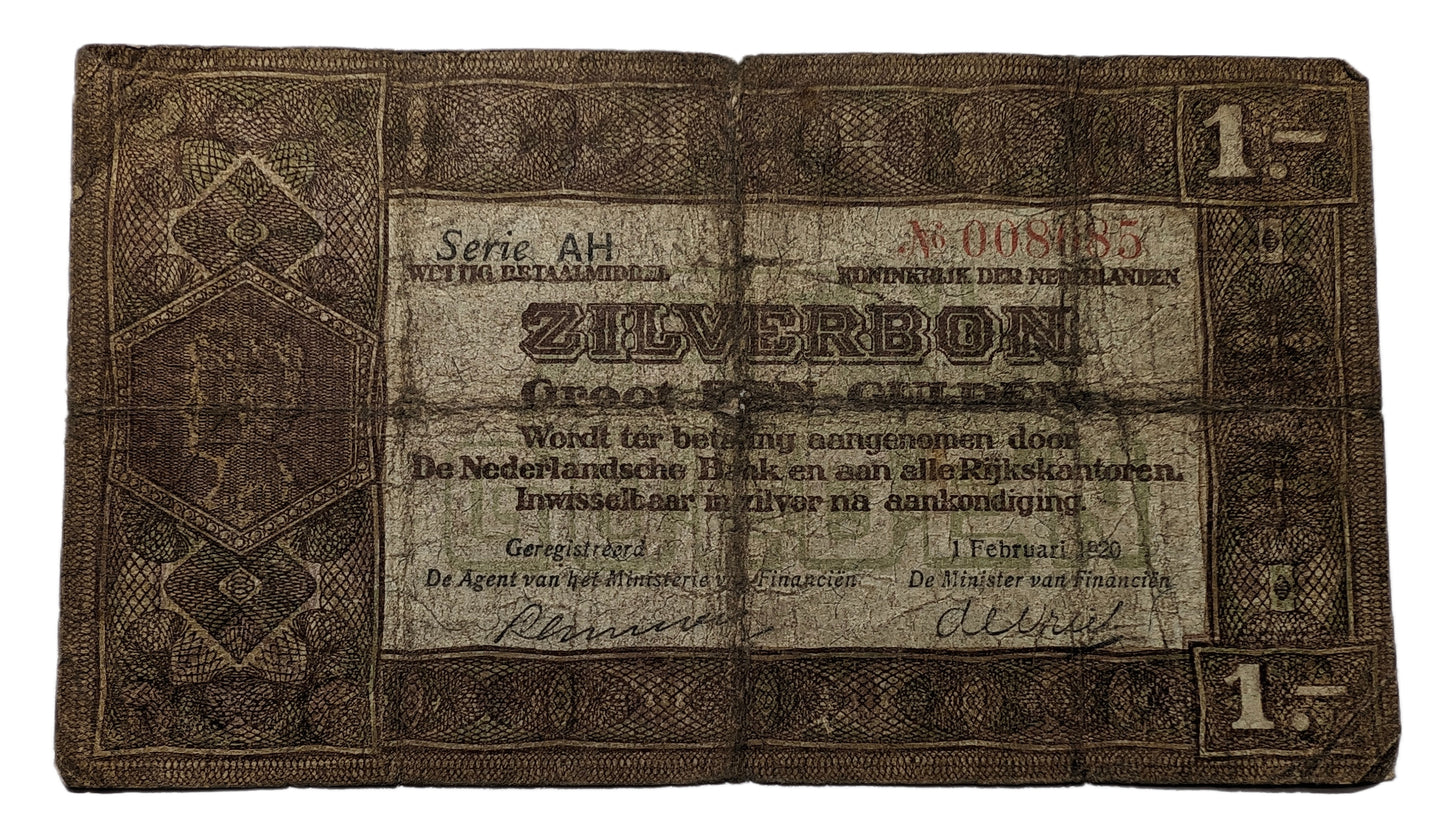 1.-
Serie AH
№ 008085
WETTIG BETAALMIDDEL
KONINKRIJK DER NEDERLANDEN
ZILVERBON
Groot EEN GULDEN
Wordt ter betaling aangenomen door
De Nederlandsche Bank en aan alle Rijkskantoren.
Inwisselbaar in zilver na aankondiging.
Geregistreerd
1 Februari 1920
De Agent van het Ministerie van Financiën
De Minister van Financiën
1.-